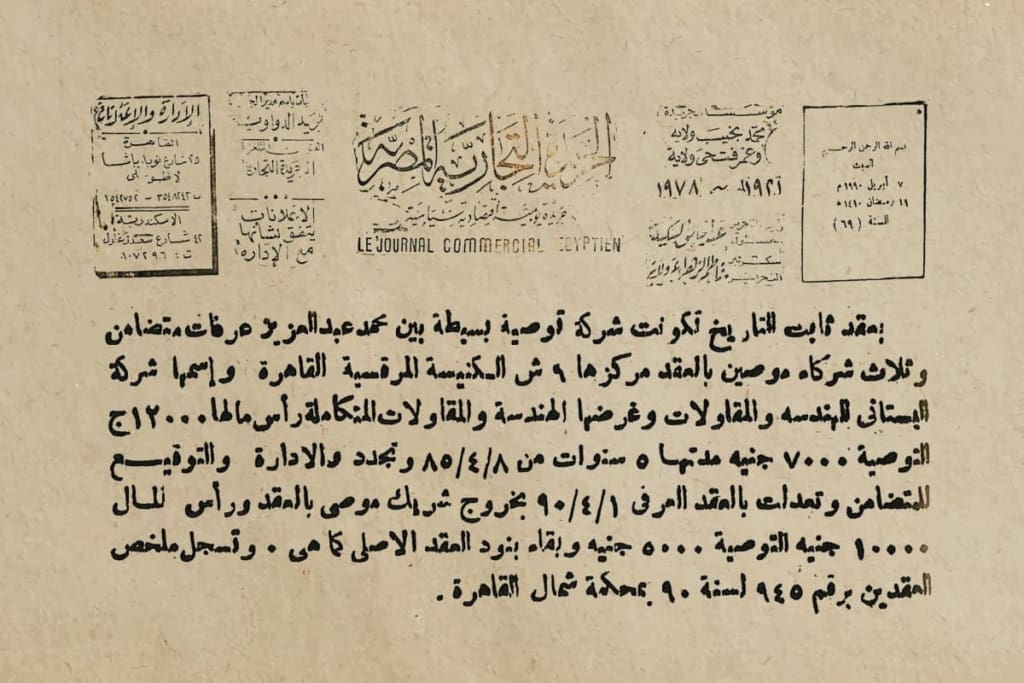 بسم الله الرحمن الرحيم
السبت
٧ أبريل ١٩٩٠ م
١١ رمضان ١٤١٠ هـ
السنة (٦٩)
مؤسسا جريدة
محمد نجيب ولاية
وعمر فتحى ولاية
١٩٢١ ~ ١٩٧٨
الجريدة التجارية المصرية
جريدة يومية اقتصادية سياسية
LE JOURNAL COMMERCIAL EGYPTIEN
الجريدة التجارية
الإعلانات
يتفق بشأنها
مع الإدارة
الإدارة والإعلانات
القاهرة
٢٥ شارع نوبار باشا
لاظوغلى
ت ٣٥٤٨٢٤٢ - ١٥٤٢٧٥٢
الاسكندرية
٤٢ شارع سعد زغلول
ت : ٨٠٧٢٩٦
بعقد ثابت التاريخ تكونت شركة توصية بسيطة بين محمد عبد العزيز عرفات متضامن
وثلاث شركاء موصين بالعقد مركزها ٩ ش الكنيسة المرقسية القاهرة وإسمها شركة
البستانى للهندسه والمقاولات وغرضها الهندسة والمقاولات المتكاملة رأس مالها ١٢٠٠٠ ج
التوصية ٧٠٠٠ جنيه مدتها ٥ سنوات من ٨٥/٤/٨ وتجدد والادارة والتوقيع
للمتضامن وتعدلت بالعقد العرفى ٩٠/٤/١ بخروج شريك موصى بالعقد ورأس المال
١٠٠٠٠ جنيه التوصية ٥٠٠٠ جنيه وبقاء بنود العقد الاصلى كما هى . وتسجل ملخص
العقدين برقم ٩٤٥ لسنة ٩٠ بمحكمة شمال القاهرة .